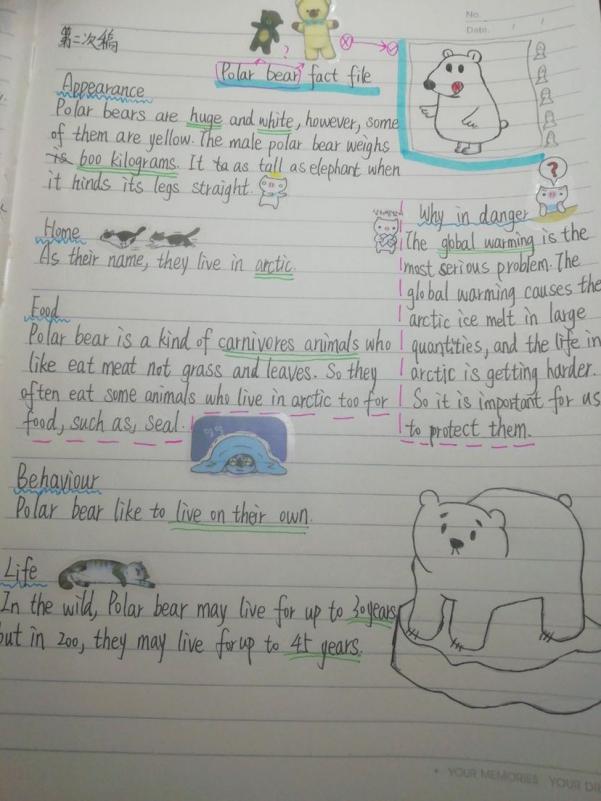 第二次稿
No.
Date.
?
Polar bear fact file
Appearance
Polar bears are huge and white, however, some
of them are yellow. The male polar bear weighs
is 600 kilograms. It ta as tall as elephant when
it hinds its legs straight.
Home
As their name, they live in arctic.
Food
Polar bear is a kind of carnivores animals who
like eat meat not grass and leaves. So they
often eat some animals who live in arctic too for
food, such as, seal.
?
Why in danger
The global warming is the
most serious problem. The
global warming causes the
arctic ice melt in large
quantities, and the life in
arctic is getting harder.
So it is important for us
to protect them.
Behaviour
Polar bear like to live on their own.
Life
In the wild, Polar bear may live for up to 30 years
but in zoo, they may live for up to 45 years.
YOUR MEMORIES YOUR